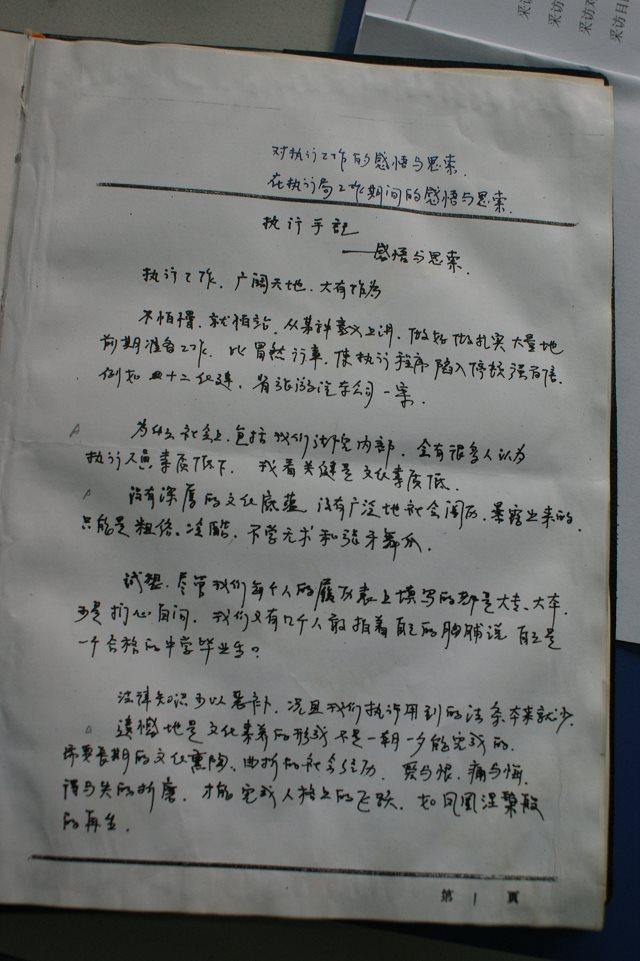 采访
采访
采访对
采访日
对执行工作的感悟与思索.
在执行局工作期间的感悟与思索.
执行手记
——感悟与思索.
执行工作, 广阔天地, 大有作为
不怕慢, 就怕站, 从某种意义上讲, 做好做扎实大量地
前期准备工作, 比冒然行事, 使执行程序陷入停顿强百倍.
例如 四十二 旅游汽车公司一案.
为什么社会上, 包括我们法院内部, 会有很多人认为
执行人员素质低下. 我看关健是文化素质低.
没有深厚的文化底蕴 没有广泛地社会阅历, 暴露出来的
只能是粗俗、冷酷, 不学无术和张牙舞爪.
试想, 尽管我们每个人的履历表上填写的都是大专、大本,
可是扪心自问, 我们又有几个人敢拍着自己的胸脯说 自己是
一个合格的中学毕业生?
法律知识可以恶补, 况且我们执行用到的法条本来就少.
遗憾地是文化素养的形成不是一朝一夕能完成的.
需要长期的文化熏陶、曲折的社会经历, 爱与恨, 痛与悔,
得与失的折磨, 才能完成人格上的飞跃, 如凤凰涅槃般
的再生.
第 1 頁